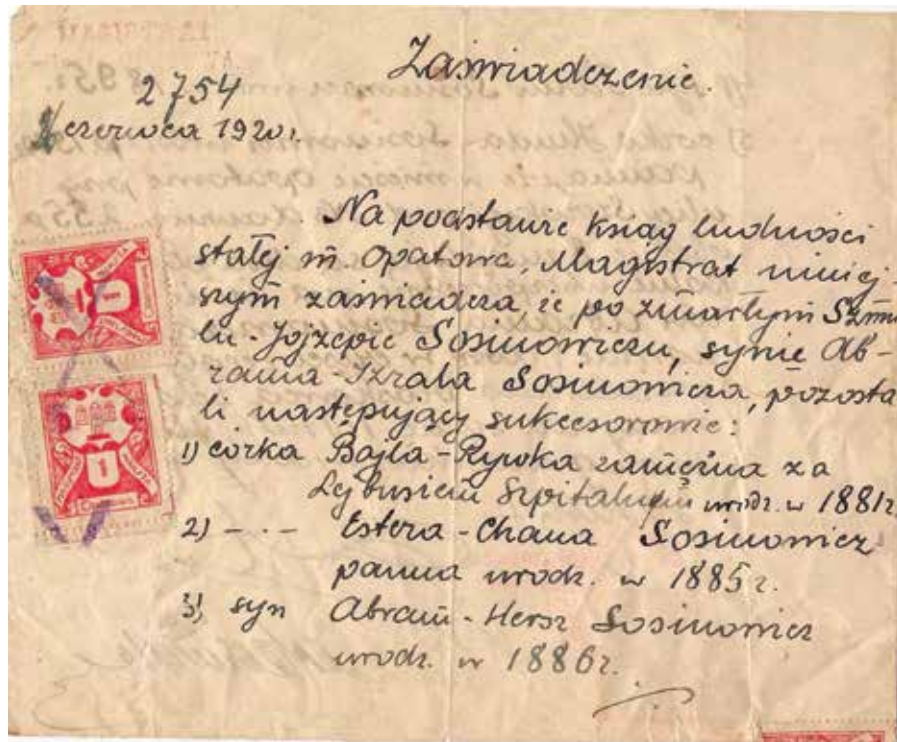 Zaświadczenie.
2754
czerwca 1920 r.
Na podstawie ksiąg ludności
stałej m. Opatowa, Magistrat niniej
szym zaświadcza, że po zmarłym Szmu
lu-Jojzepie Sosinowiczu, synie Ab-
rama-Izraela Sosinowicza, pozosta
li następujący sukcesorowie:
1) córka Bajla-Rywka zamężna za
Lejbusiem Szpitalnym urodz. w 1881 r.
2) — · — Estera-Chana Sosinowicz
panna urodz. w 1885 r.
3) syn Abram-Hersz Sosinowicz
urodz. w 1886 r.
1
1